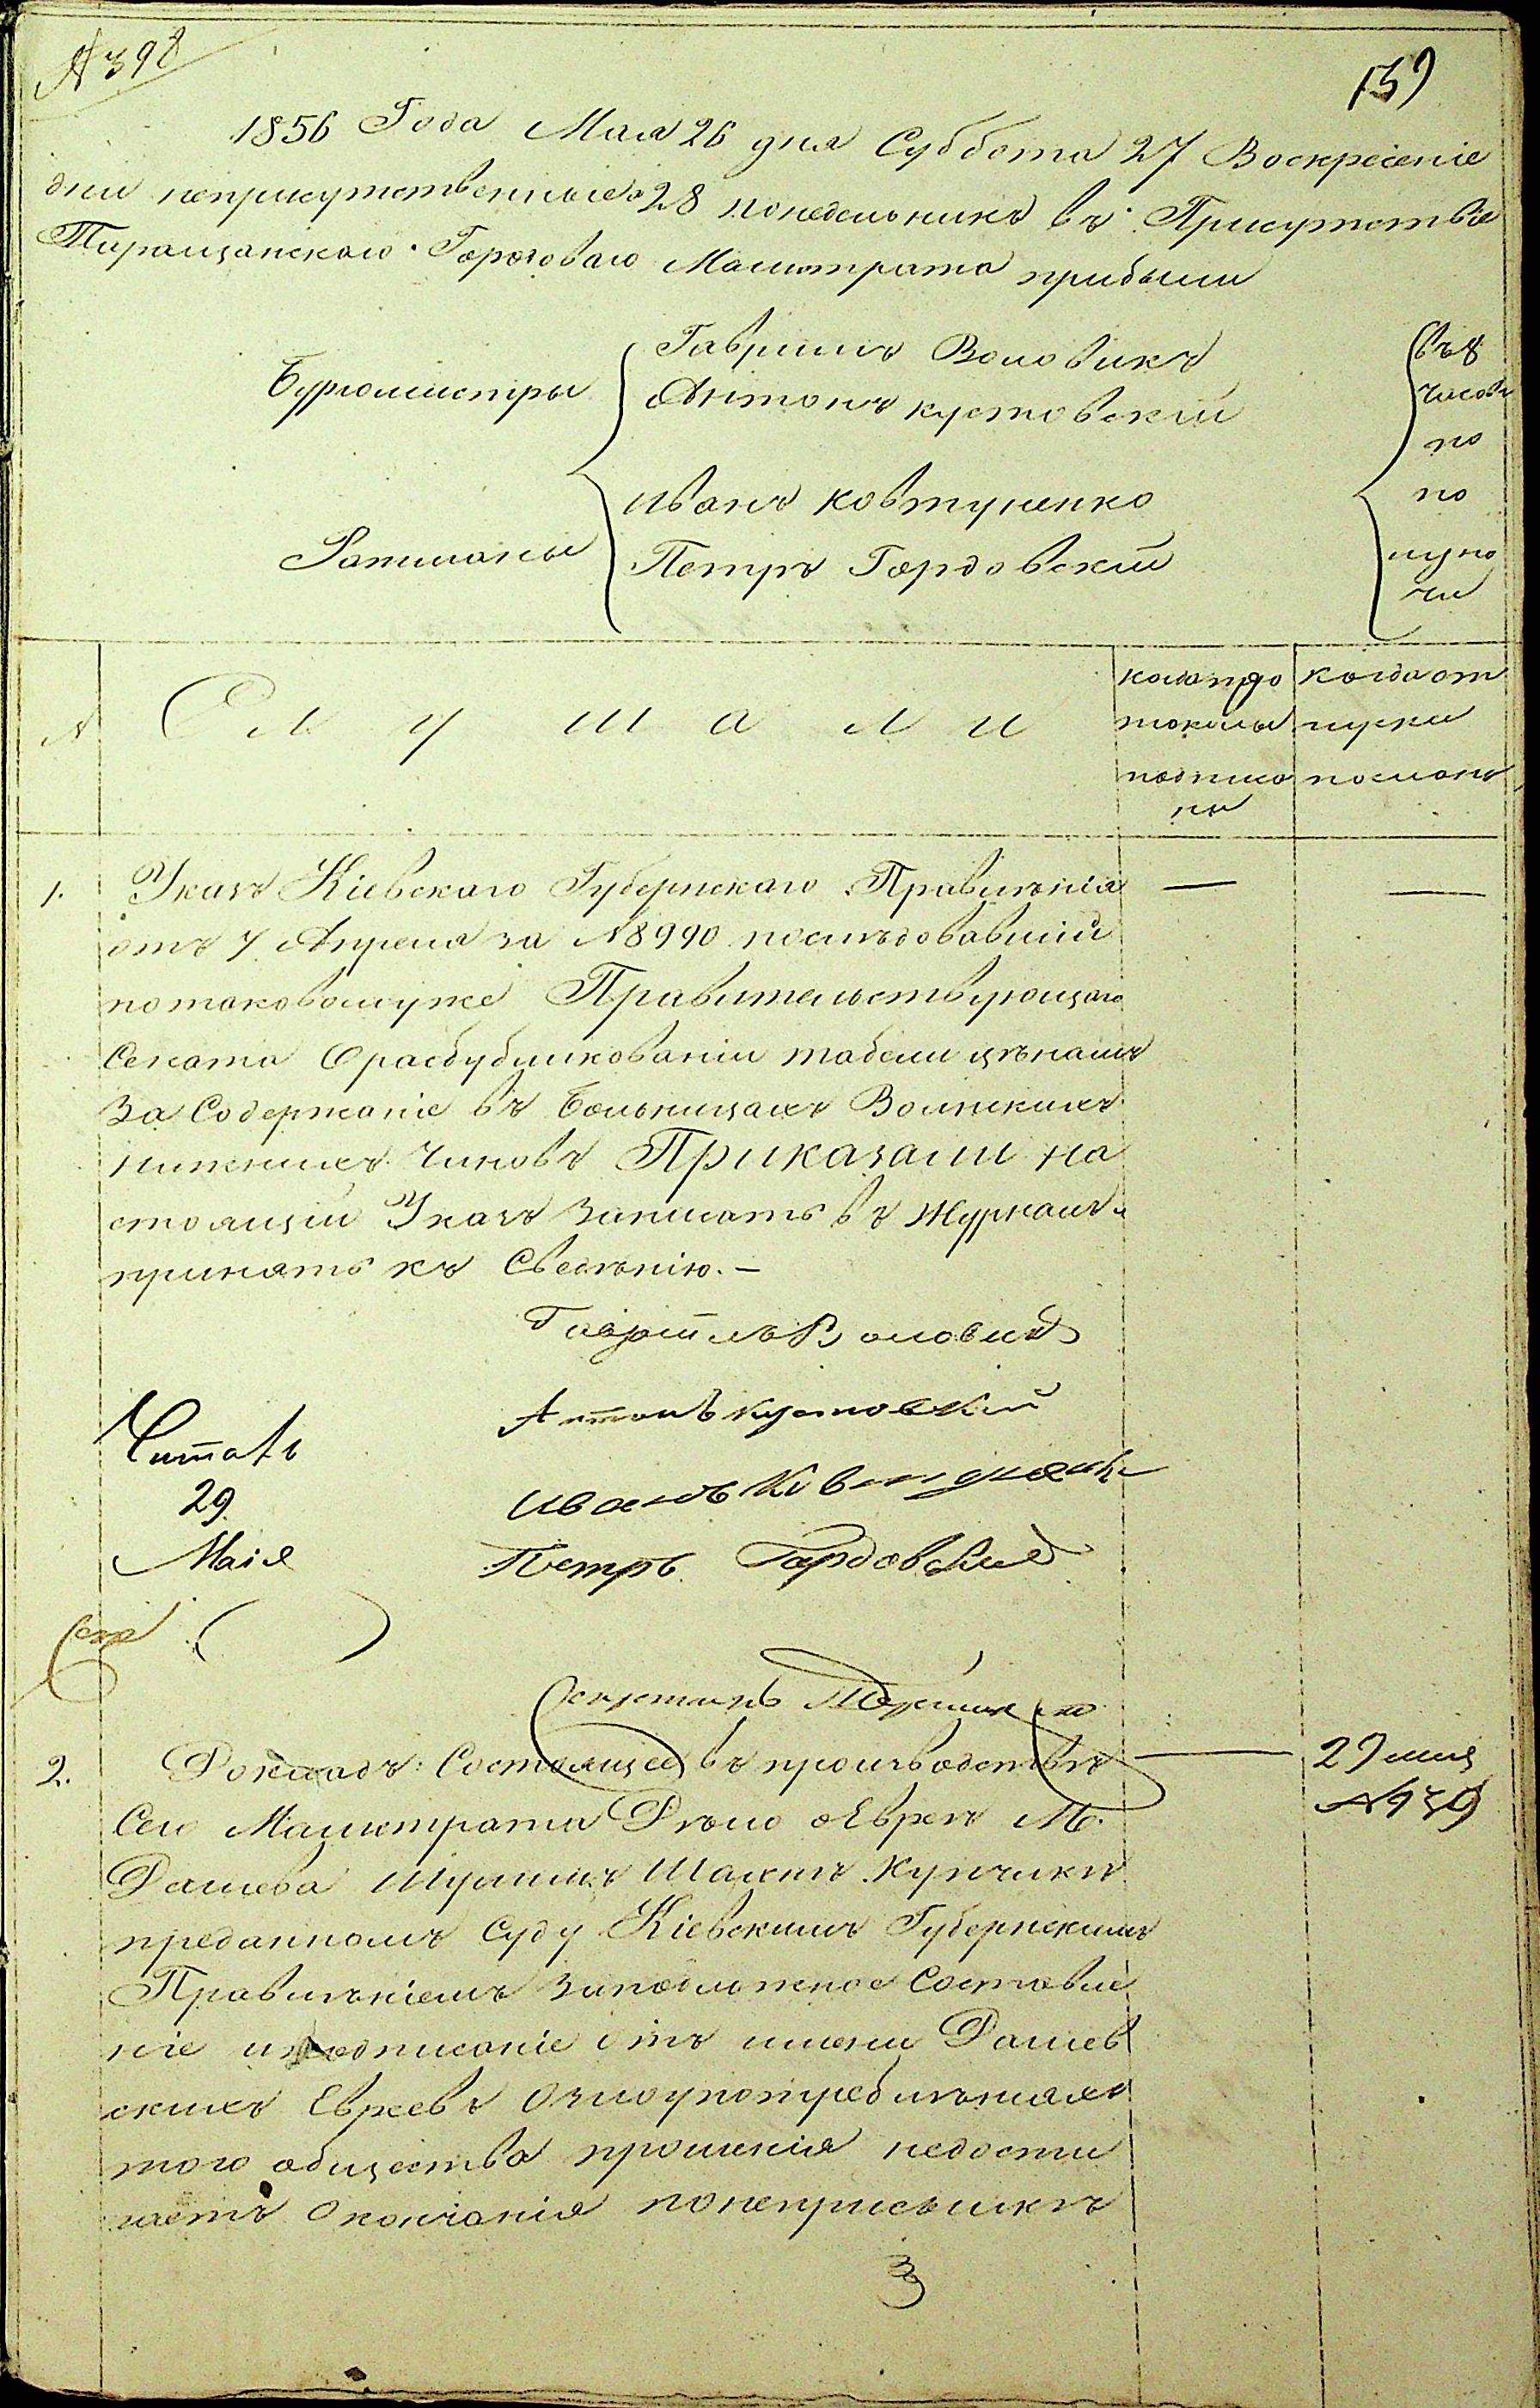 № 398
139
1856 Года Мая 26 дня Суббота 27 Воскресеніе
дни неприсутственные 28 понедельникъ въ Присутствіе
Таращанскаго Городоваго Магистрата прибыли
Бургомистры
Гавріилъ Воловикъ
Антонъ Кустовскій
Ратманы
Иванъ Ковтуненко
Петръ Гордовскій
въ 8
часовъ
по
по
луно
чи
№
Слушали
когда про
токолы
подписа
ны
когда от
пуски
посланы
1. Указъ Кіевскаго Губернскаго Правленія
отъ 7 Апреля за №8990 последовавшій
по таковому же Правительствующаго
Сената О распубликованіи табели ценамъ
За Содержаніе въ Больницахъ Воинскихъ
нижнихъ Чиновъ Приказали на
стоящій Указъ Записать въ Журналъ и
принять къ Сведенію. —
Гавріилъ Воловикъ
Антонъ Кустовскій
Иванъ Ковтуненко
Петръ Гордовскій
Читалъ
29
Маія
Секретарь
2. Докладъ: Состоящее въ производстве
Сего Магистрата Дело о Еврее М.
Дашева Шулиме Купчике
преданномъ Суду Кіевскимъ Губернскимъ
Правленіемъ За подложное Составле
ніе и подписаніе отъ имени Дашев
скихъ Евреевъ О злоупотребленіяхъ
того общества прошенія недости
гаетъ Окончанія по неприсылке
29 мая
№ 939